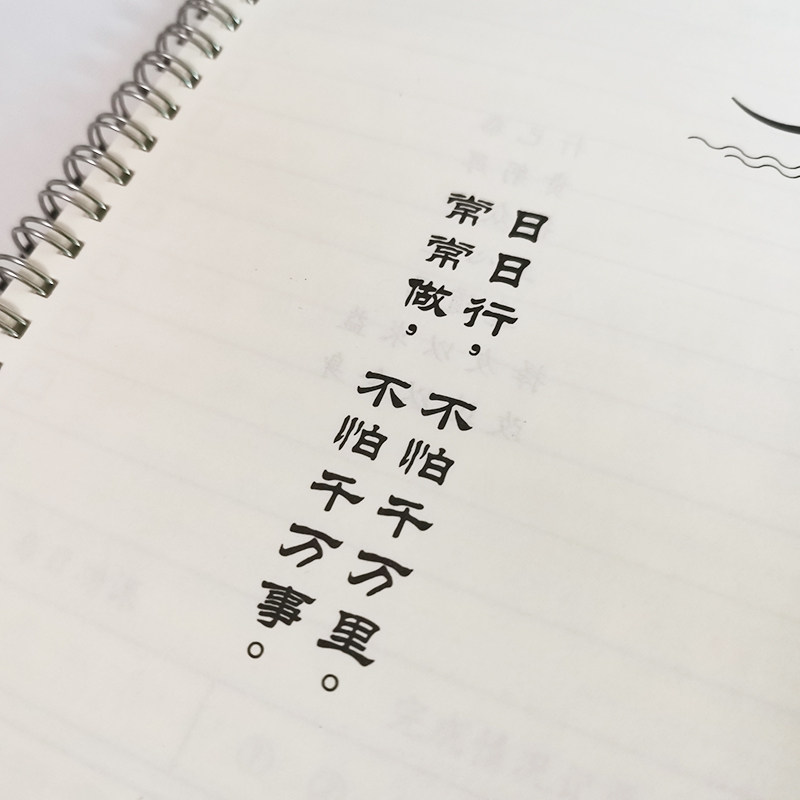 日日行，不怕千万里。
常常做，不怕千万事。